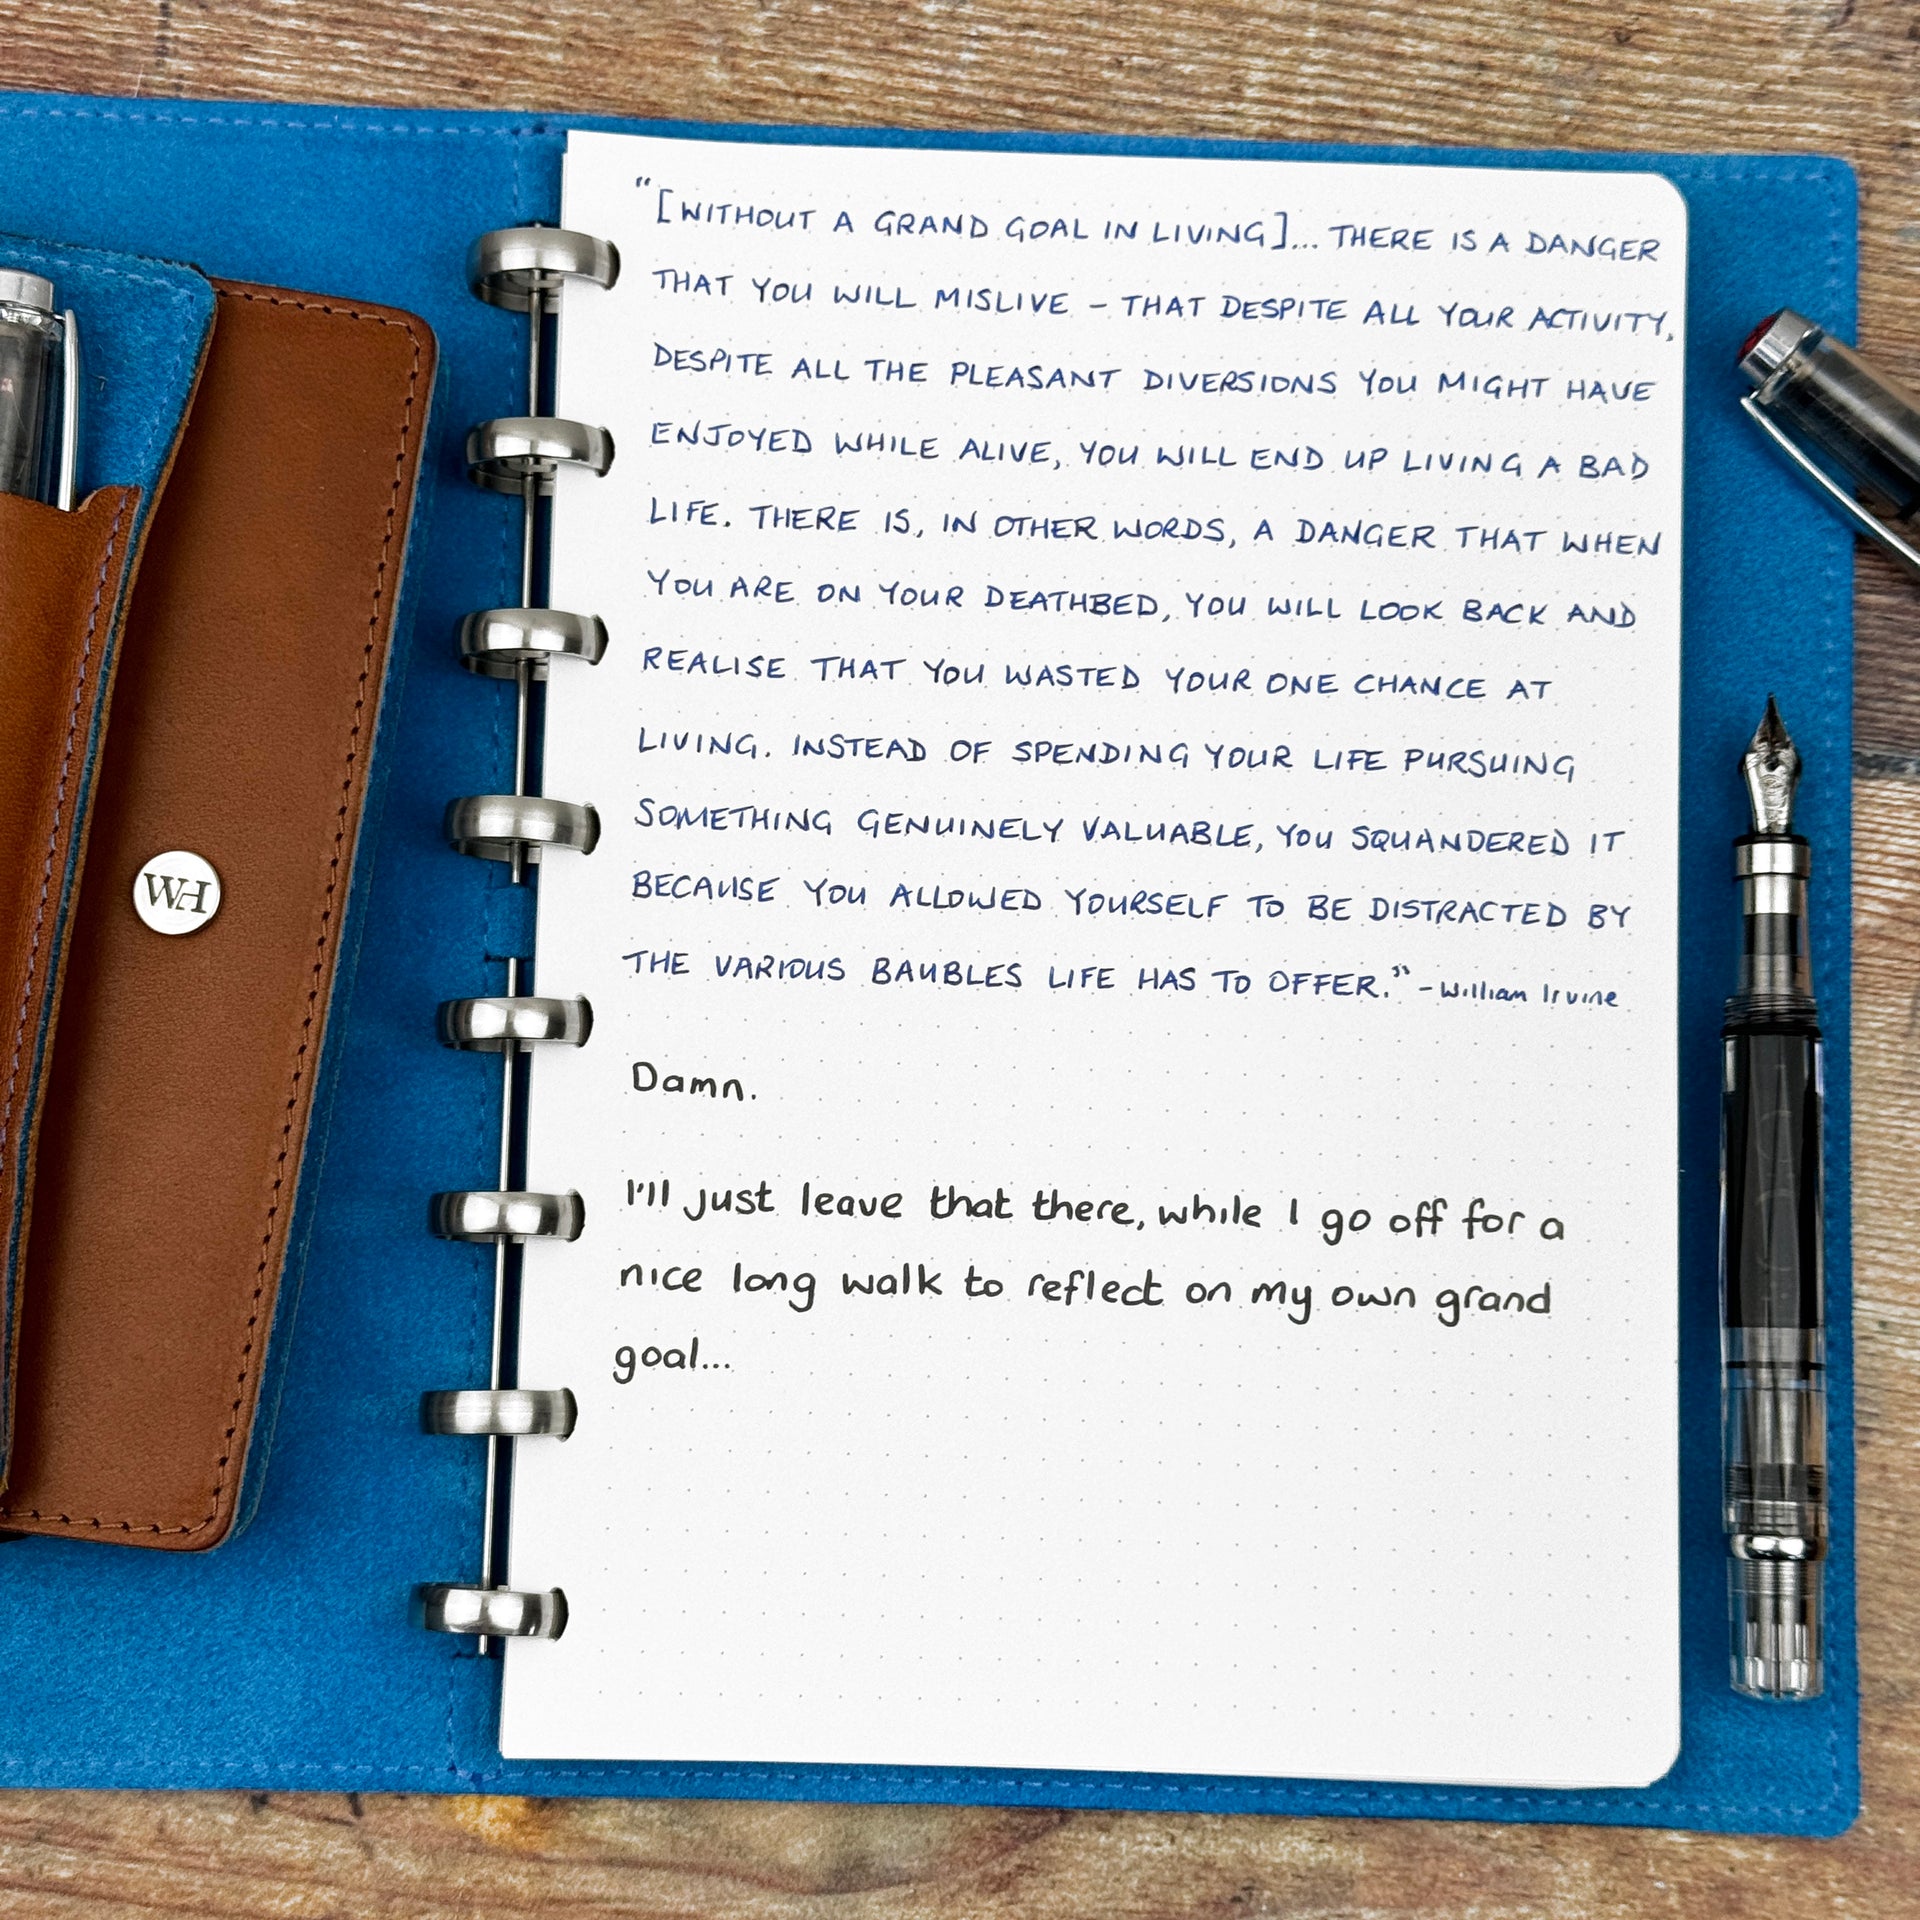 WH
"[WITHOUT A GRAND GOAL IN LIVING]... THERE IS A DANGER
THAT YOU WILL MISLIVE – THAT DESPITE ALL YOUR ACTIVITY,
DESPITE ALL THE PLEASANT DIVERSIONS YOU MIGHT HAVE
ENJOYED WHILE ALIVE, YOU WILL END UP LIVING A BAD
LIFE. THERE IS, IN OTHER WORDS, A DANGER THAT WHEN
YOU ARE ON YOUR DEATHBED, YOU WILL LOOK BACK AND
REALISE THAT YOU WASTED YOUR ONE CHANCE AT
LIVING. INSTEAD OF SPENDING YOUR LIFE PURSUING
SOMETHING GENUINELY VALUABLE, YOU SQUANDERED IT
BECAUSE YOU ALLOWED YOURSELF TO BE DISTRACTED BY
THE VARIOUS BAUBLES LIFE HAS TO OFFER." - William Irvine
Damn.
I'll just leave that there, while I go off for a
nice long walk to reflect on my own grand
goal...